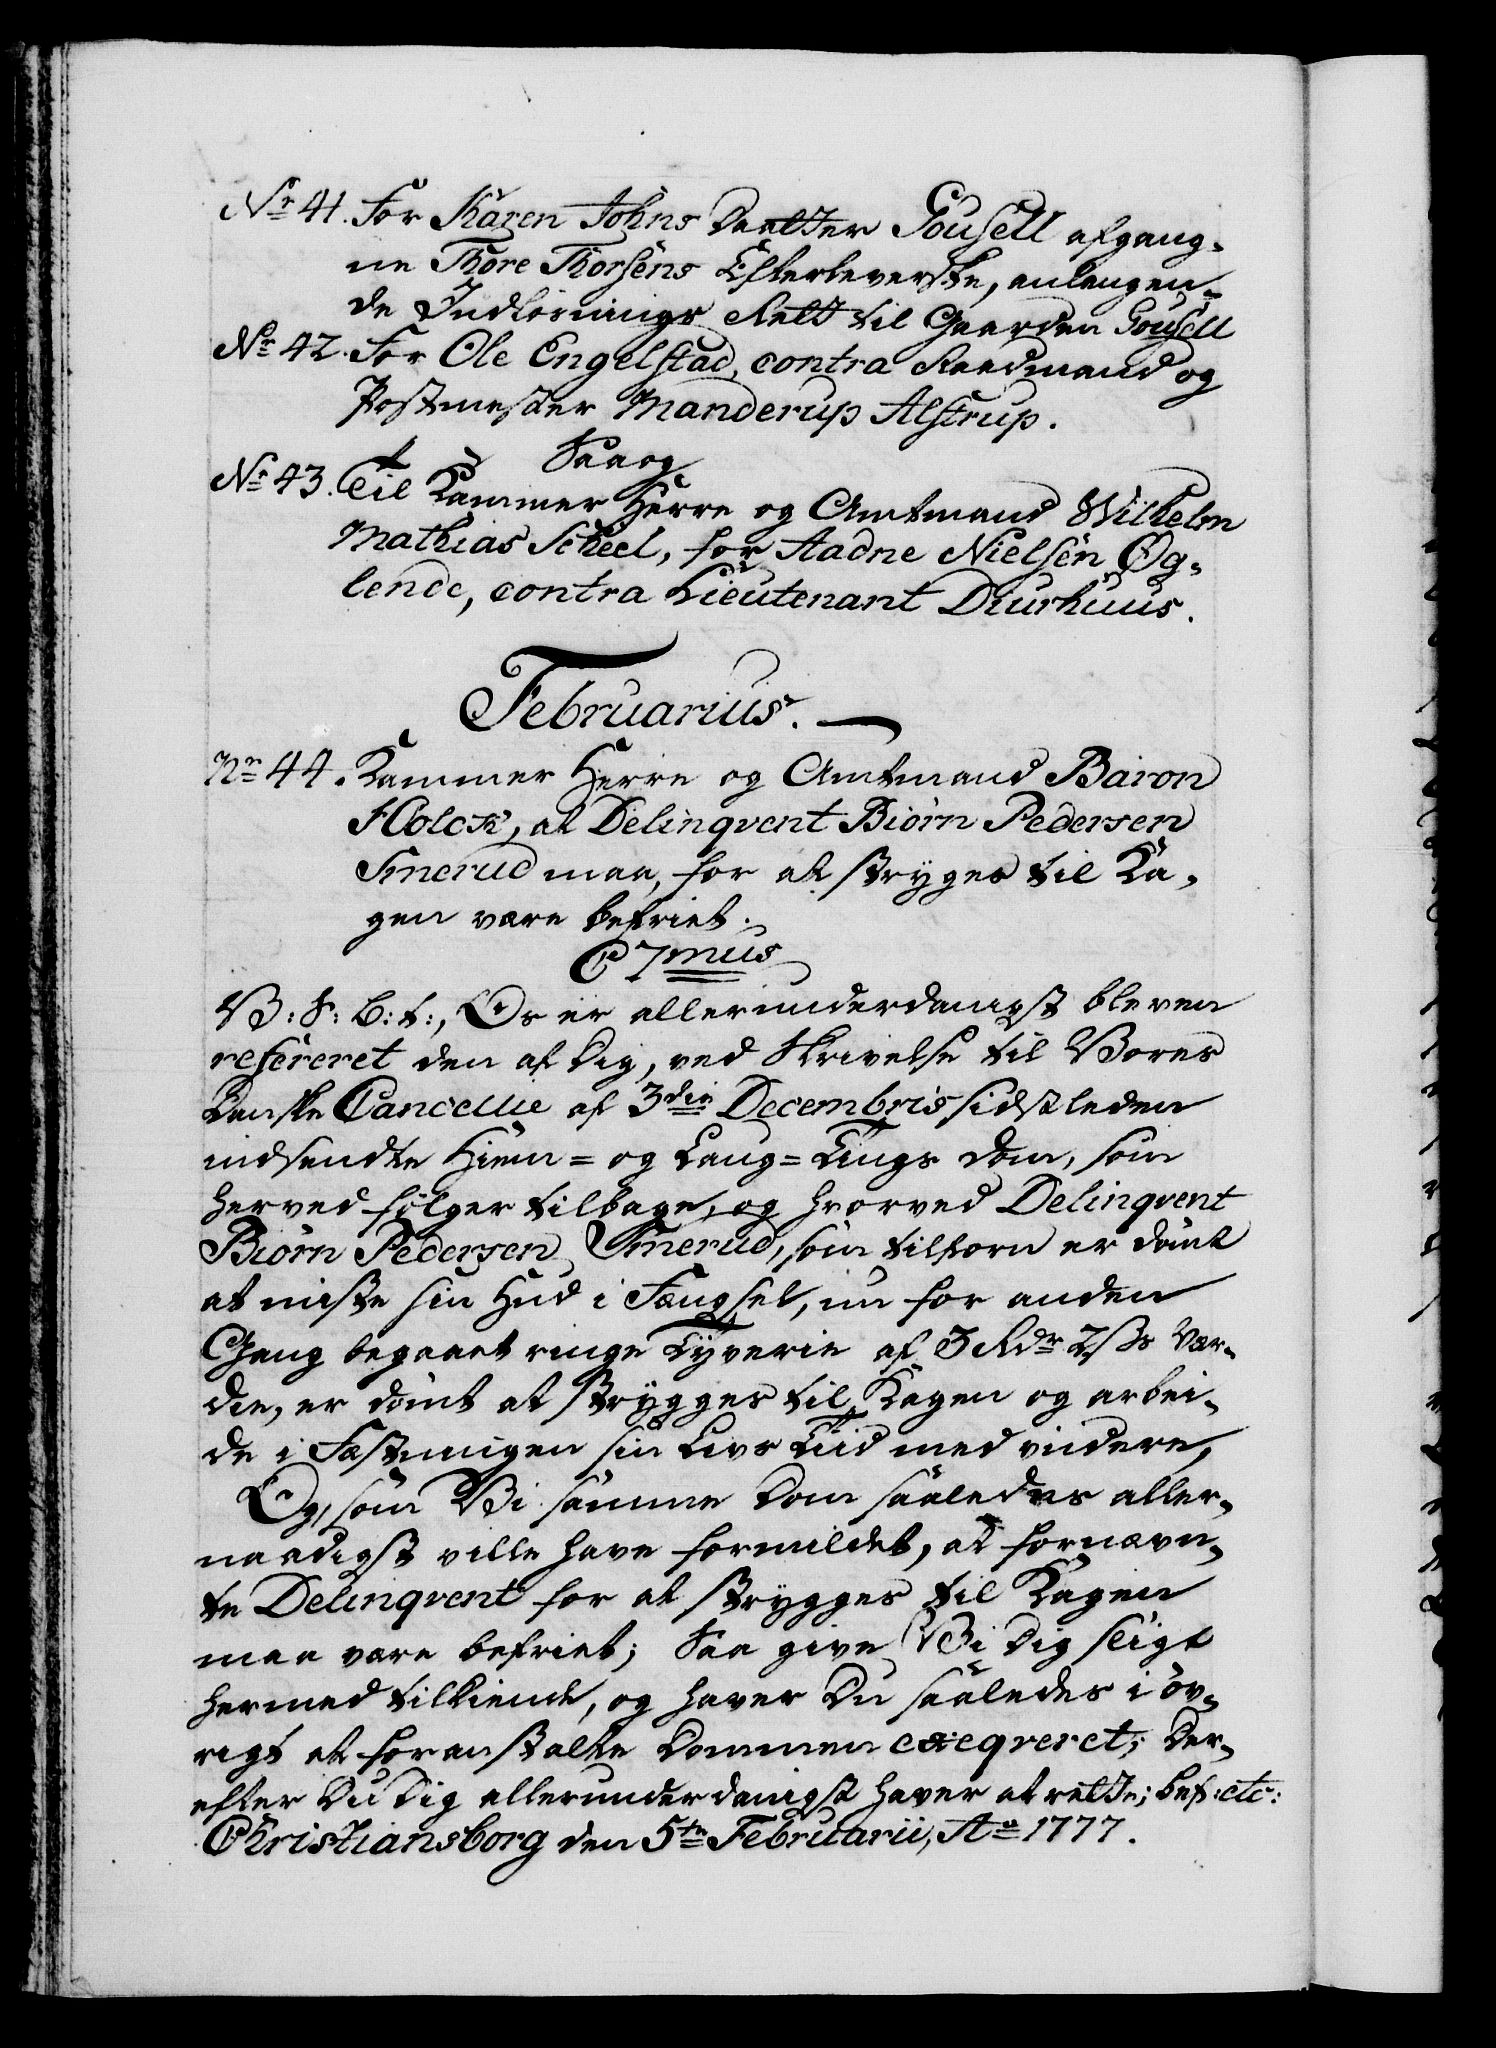 Nr 41. For Karen Johns Daatter Gousell afgang-
ne Thore Thorsens Efterleverske, anlangen-
de Indlösnings Rett til Gaarden Gousell
Nr 42. For Ole Engelstad, contra Raadmand og
Postmester Manderup Alstrup.
Saa og
Nr 43. Til Kammer Herre og Amtmand Wilhelm
Mathias Scheel, for Aadne Nielsen Øg-
lende, contra Lieutenant Diurhuus.
Februarius.
Nr 44. Kammer Herre og Amtmand Baron
Holck, at Delinqvent Biörn Pedersen
Smerud maa, for at stryges til Ka-
gen være befriet.
C 7mus
V: S: G: t:, Os er allerunderdanigst bleven
refereret den af Dig, ved Skrivelse til Vores
Danske Cancellie af 3die Decembris sidstleden
indsendte Hiem= og Laug=Tings Dom, som
herved fölger tilbage, og hvorved Delinqvent
Biörn Pedersen Smerud, som tilforn er dömt
at miste sin Hud i Fængsel, nu for anden
Gang begaaet ringe Tyverie af 3 Rdr 2 ß Vær-
die, er dömt at strygges til Kagen og arbei-
de i Fæstningen sin Livs Tiid med videre,
Og, som Vi samme Dom saaledes aller-
naadigst ville have formildet, at fornævn-
te Delinqvent for at strygges til Kagen
maa være befriet; Saa give Vi Dig sligt
hermed tilkiende, og haver Du saaledes i öv-
rigt at foranstalte Dommen exeqveret; Der-
efter Du Dig allerunderdanigst haver at rette; bef: etc:
Christiansborg den 5te Februarii, Ao 1777.